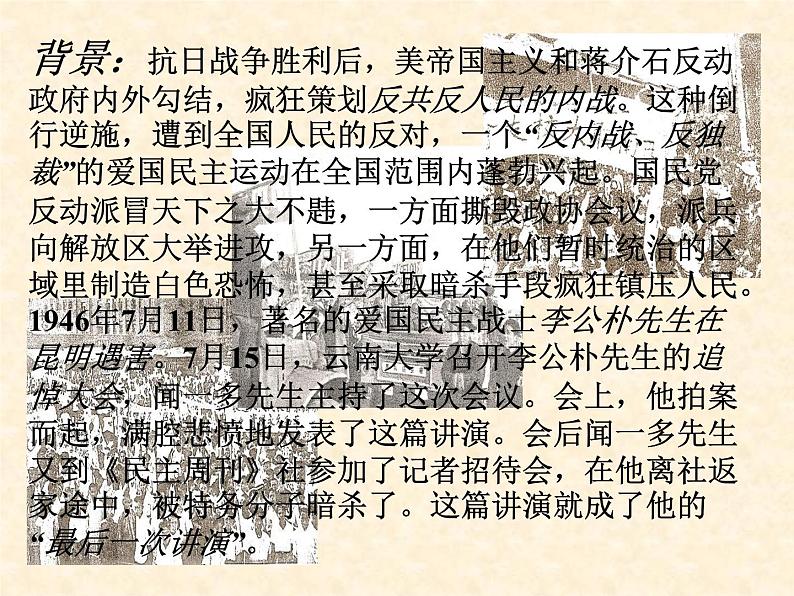 背景：抗日战争胜利后，美帝国主义和蒋介石反动
政府内外勾结，疯狂策划反共反人民的内战。这种倒
行逆施，遭到全国人民的反对，一个“反内战、反独
裁”的爱国民主运动在全国范围内蓬勃兴起。国民党
反动派冒天下之大不韪，一方面撕毁政协会议，派兵
向解放区大举进攻，另一方面，在他们暂时统治的区
域里制造白色恐怖，甚至采取暗杀手段疯狂镇压人民。
1946年7月11日，著名的爱国民主战士李公朴先生在
昆明遇害。7月15日，云南大学召开李公朴先生的追
悼大会，闻一多先生主持了这次会议。会上，他拍案
而起，满腔悲愤地发表了这篇讲演。会后闻一多先生
又到《民主周刊》社参加了记者招待会，在他离社返
家途中，被特务分子暗杀了。这篇讲演就成了他的
“最后一次讲演”。